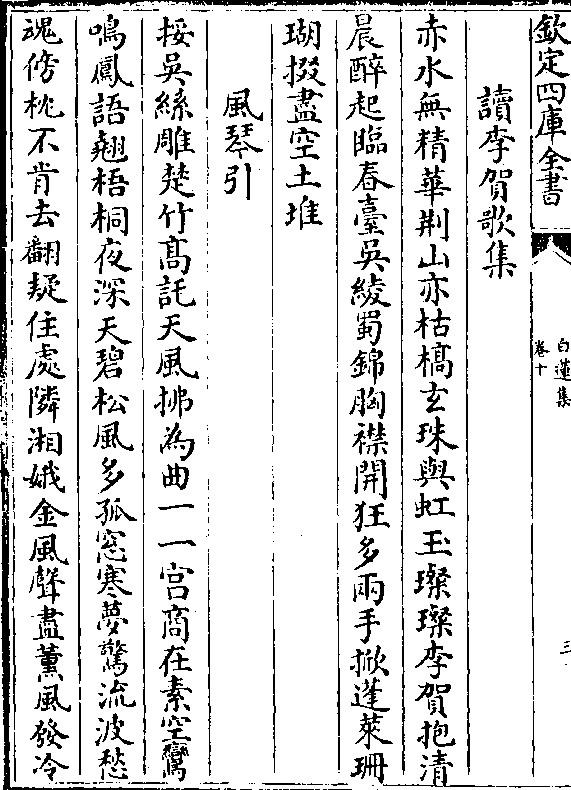 欽定四庫全書
白蓮集
卷十
三
讀李賀歌集
赤水無精華荆山亦枯槁玄珠與虹玉璨璨李賀抱清
晨醉起臨春臺吳綾蜀錦胸襟開狂多兩手掀蓬萊珊
瑚掇盡空土堆
風琴引
挼吳絲雕楚竹髙託天風拂為曲一一宫商在素空鸞
鳴鳳語翹梧桐夜深天碧松風多孤窓寒夢驚流波愁
魂傍枕不肯去翻疑住處隣湘娥金風聲盡薰風發冷